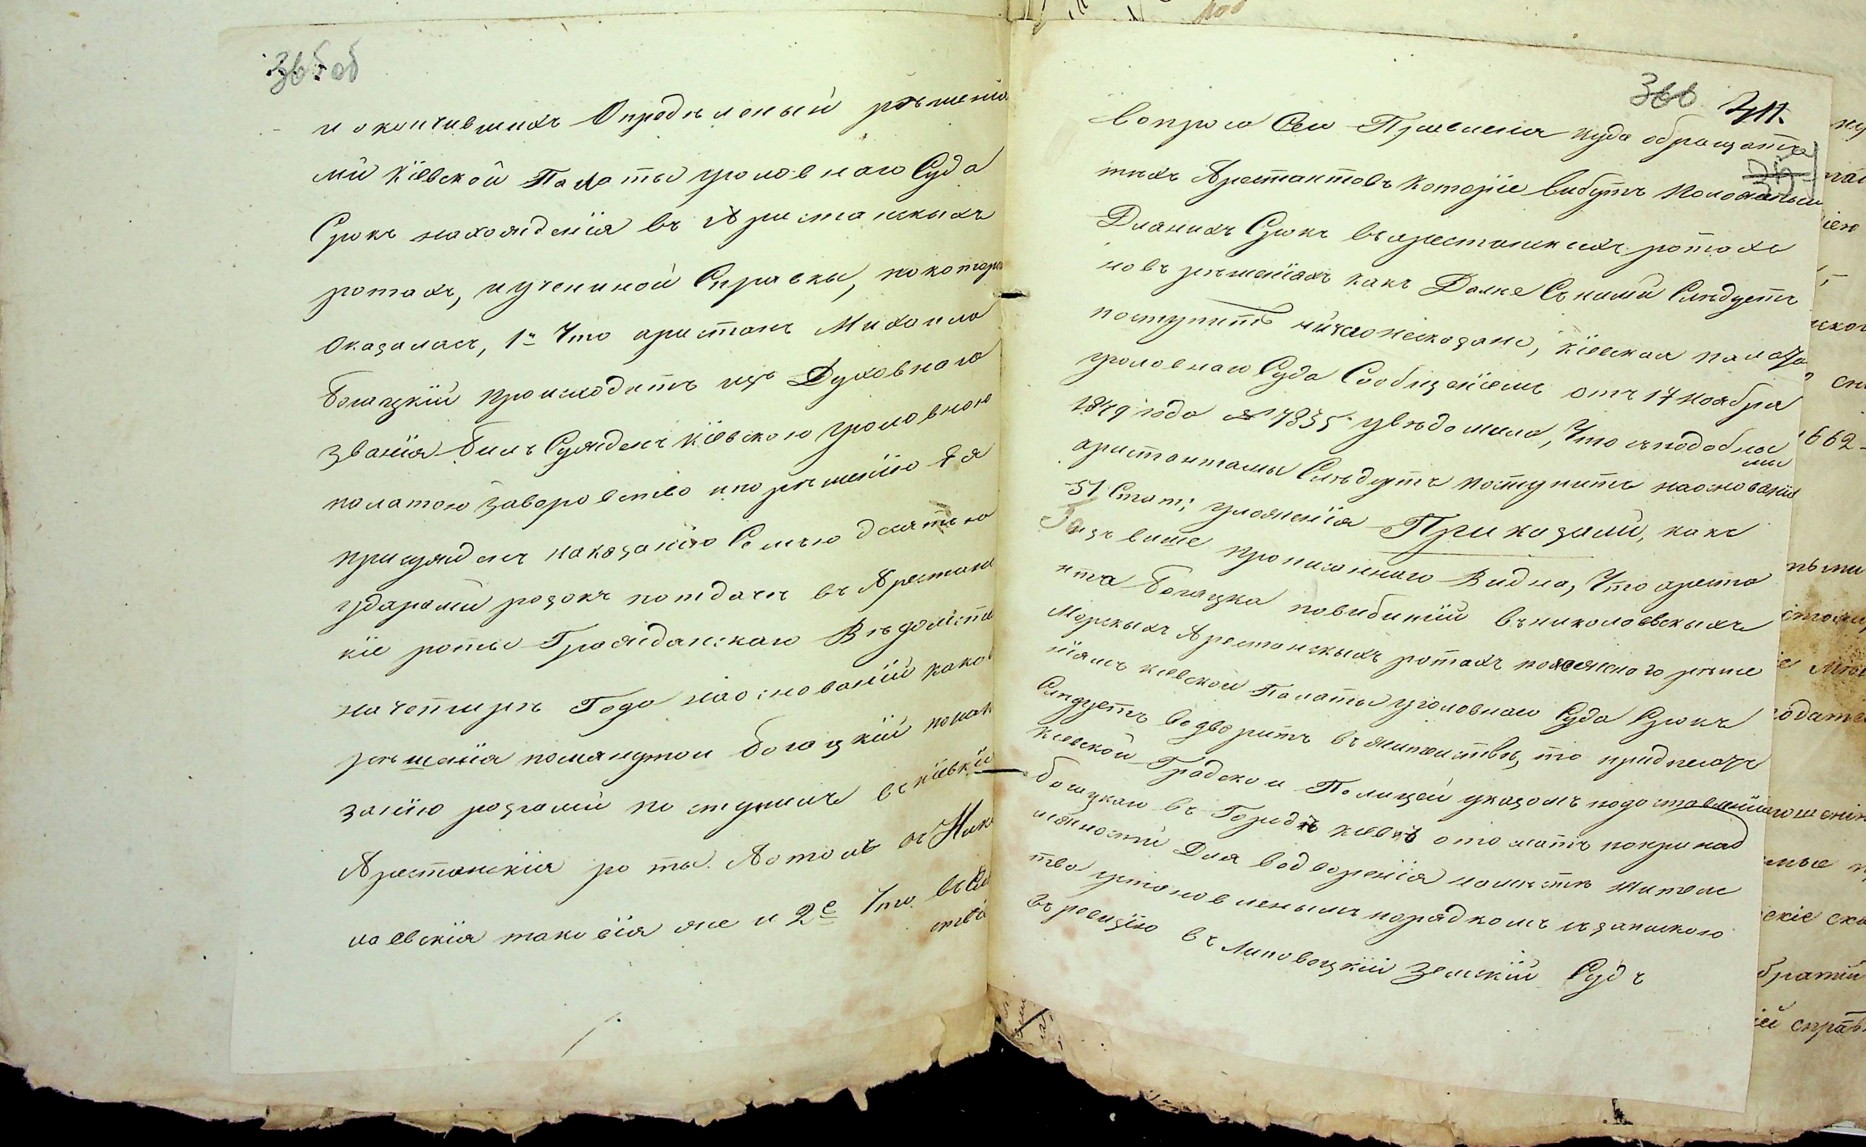 365 об
и окончившихъ Опредѣленый рѣшенія
ми Кіевской Палаты уголовнаго Суда
Срокъ нахожденія въ Аристанскихъ
ротахъ, и учениной Справки, по котор
Оказалось, 1е Что аристанъ Михаила
Богацкій происходитъ изъ Духовнаго
званія былъ Сужденъ Кіевскою уголовною
палатою за воровство и по рѣшенію Ея
присужденъ наказанію Семью десятью
ударами розокъ и отдачи въ Арестанс
кіе роты Гражданскаго Вѣдомств
на четыри Года на основаній како
рѣшенія помянутои Богацкій по нака
занію розгами поступилъ въ Кіевскій
Арестанскія роты. А отомъ въ Нико
лаевскія таковія же и 2е Что въ Св
366
вопроса Сего Правленія куда обращать
тѣхъ Арестантовъ которіе вибутъ положеный
Для нихъ Срокъ въ арестанскихъ ротахъ
но въ рѣшеніяхъ какъ Далѣе Съ ними Слѣдуетъ
поступить ничего несказано, Кіевская палата
уголовнаго Суда Сообщеніемъ отъ 17 ноября
1849 года № 7835 увѣдомила, Что съ подобны
ми
аристантамы Слѣдуетъ поступить на основаніи
51 Стат: уложенія Приказали, какъ
изъ више прописаннаго Видно, Что ареста
нта Богацка по вибитій въ николаевскихъ
Морскихъ Арестанскихъ ротахъ положенаго рѣше
ніямъ Кіевской Палаты уголовнаго Суда Срокъ
Слѣдуетъ водворить въ жителствѣ, то предписать
Кіевской Градскои Полицей указомъ по доставленій
Богацкаго въ Городъ Кіевъ отослать по принад
лежности Для водворенія на мѣстѣ жител
тва установленымъ порядкомъ съ запискою
въ ревизію въ Липовецкій Земскій Судъ